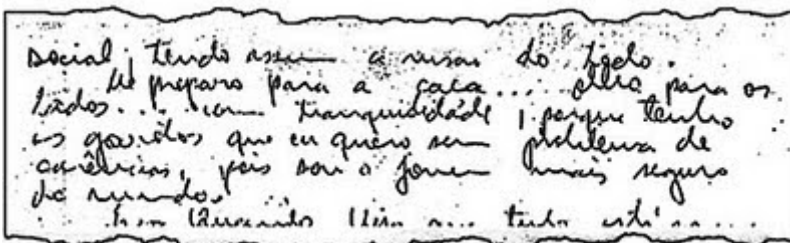 social, tendo assim a visão do todo.
Me preparo para a caça... olho para os
lados... com tranquilidade, porque tenho
as garotas que eu quero sem problema de
carências, pois sou o jovem mais seguro
do mundo.
tudo